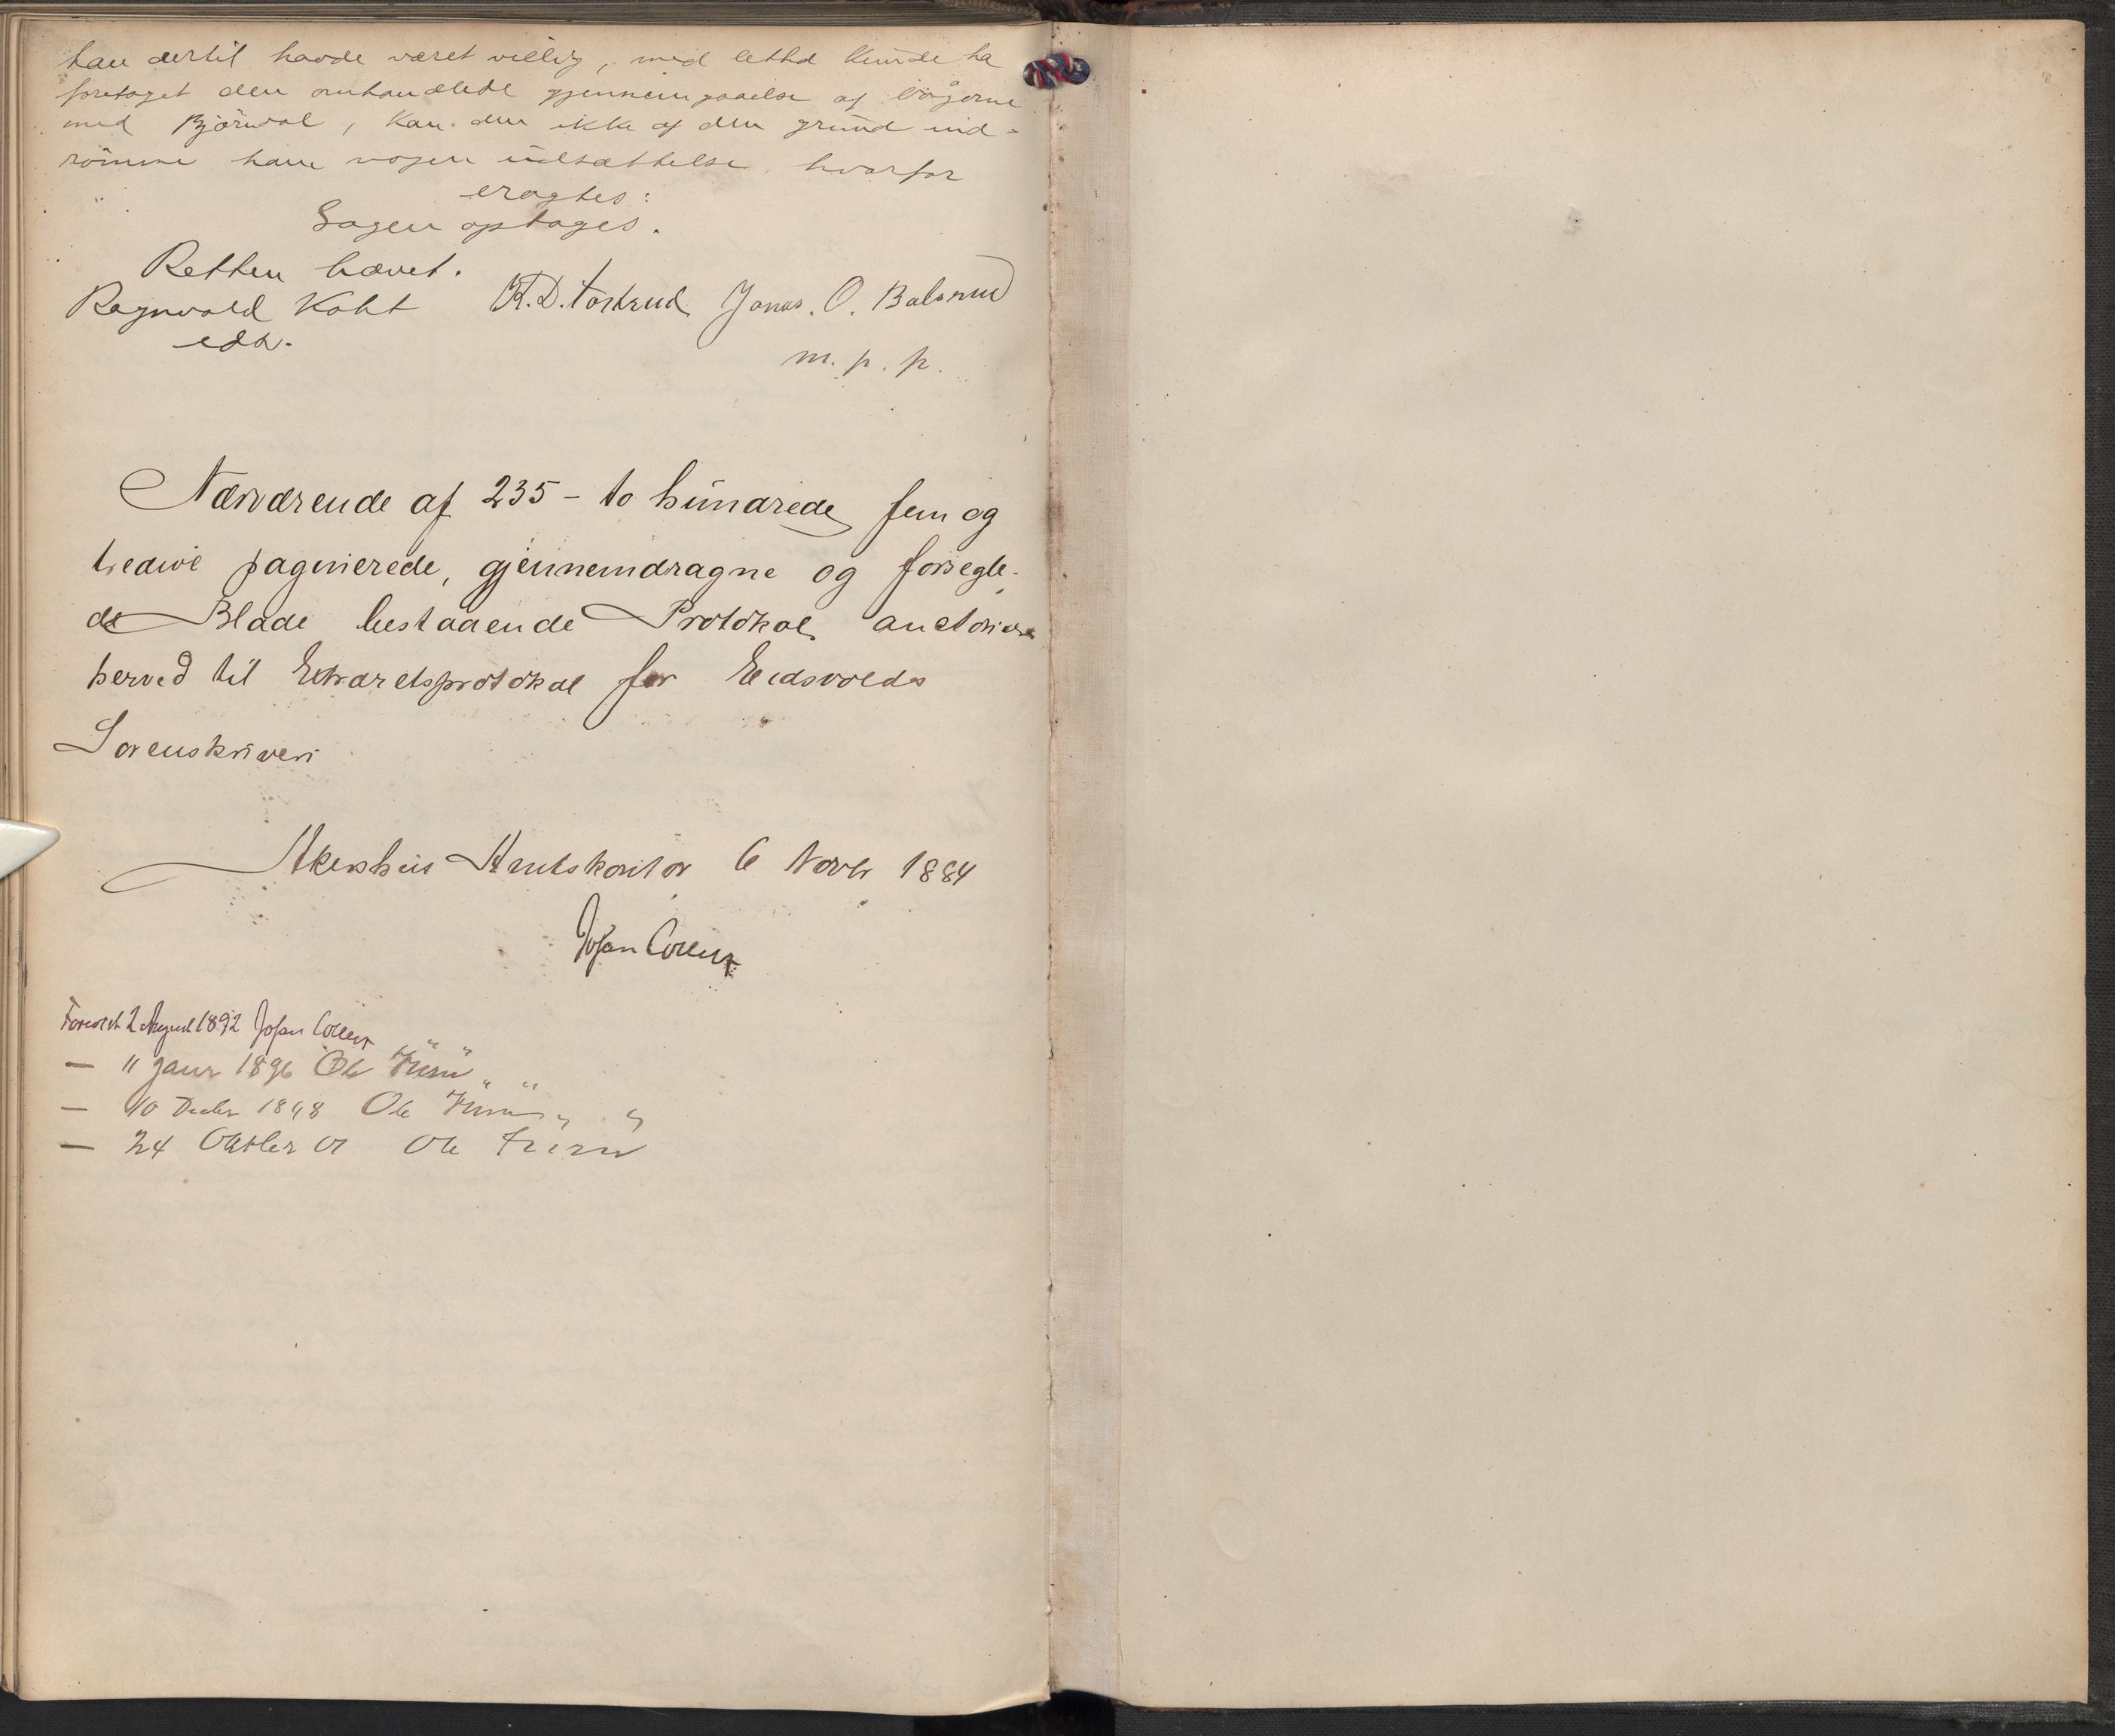 han dertil havde været villig, med lethed kunde ha
foretaget den omhandlede gjennemgaaelse af bøgerne
med Bjørvol, kan den ikke af den grund ind-
rømme ham nogen udsættelse, hvorfor
eragtes:
Sagen optages.
Retten hævet.
Ragnvald Koht K. D. Tostrud Jonas. O. Balsrud
edv. m. p. p.
Nærværende af 235 - to hundrede fem og
tredive paginerede, gjennemdragne og forsegle-
de Blade bestaaende Protokol auctoriseres
herved til Extraretsprotokol for Eidsvolds
Sorenskriveri
Akershus Amtskontor 6 Novbr 1884
Johan Collett
Forevist 2 August 1892 Johan Collett
— 11 Janr 1896 Ole Furu
— 10 Decbr 1898 Ole Furu
— 24 Oktbr 01 Ole Furu